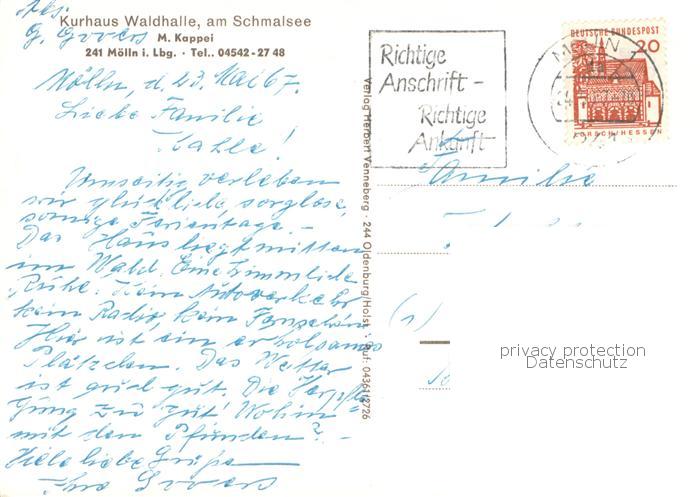 Abs.
Kurhaus Waldhalle, am Schmalsee
M. Kappei
241 Mölln i. Lbg. · Tel.. 04542-27 48
Mölln, d. 23. Mai 67.
Liebe Familie
!
Umseitig verleben
wir glückliche, sorglose,
sonnige Ferientage. -
Das Haus liegt mitten
im Wald. Eine himmlische
Ruhe. Kein Autoverkehr
kein Radio, kein Fernsehen
Hier ist ein erholsames
Plätzchen. Das Wetter
ist auch gut. Die Verpfle-
gung zu gut! Wohin
mit den Pfunden? -
Viele liebe Grüße
Ihre
Verlag Herbert Venneberg · 244 Oldenburg/Holst. · Ruf: 04361/2726
Richtige
Anschrift -
Richtige
Ankunft
DEUTSCHE BUNDESPOST
20
LORSCH/HESSEN
MÖLLN
Familie
(1)
privacy protection
Datenschutz